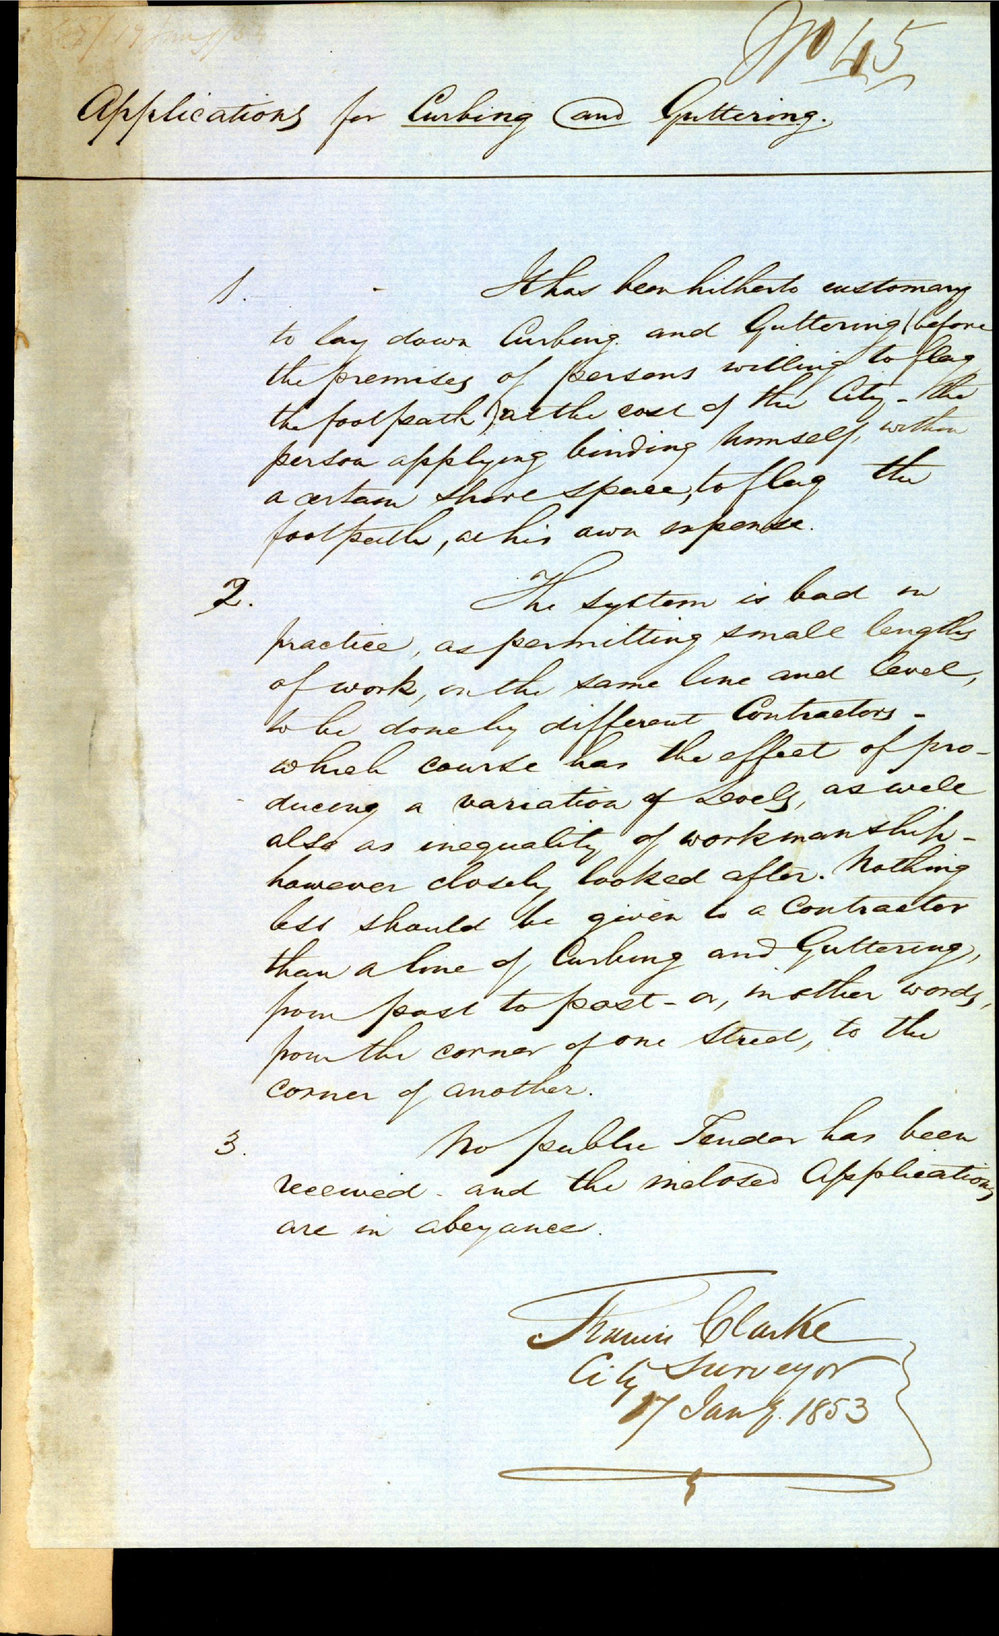 No 45
Applications for Curbing and Guttering.
1. It has been hitherto customary
to lay down Curbing and Guttering (before
the premises of persons willing to flag
the footpath) at the cost of the City - the
person applying binding himself, within
a certain short space, to flag the
footpath, at his own expense.
2. The system is bad in
practice, as permitting small lengths
of work, on the same line and level,
to be done by different Contractors -
which course has the effect of pro-
ducing a variation of Levels, as well
also as inequality of workmanship -
however closely looked after. Nothing
less should be given to a Contractor
than a line of Curbing and Guttering,
from post to post - or, in other words,
from the corner of one Street, to the
corner of another.
3. No public Tender has been
received - and the inclosed Applications
are in abeyance.
Francis Clarke
City Surveyor
17 Jany. 1853